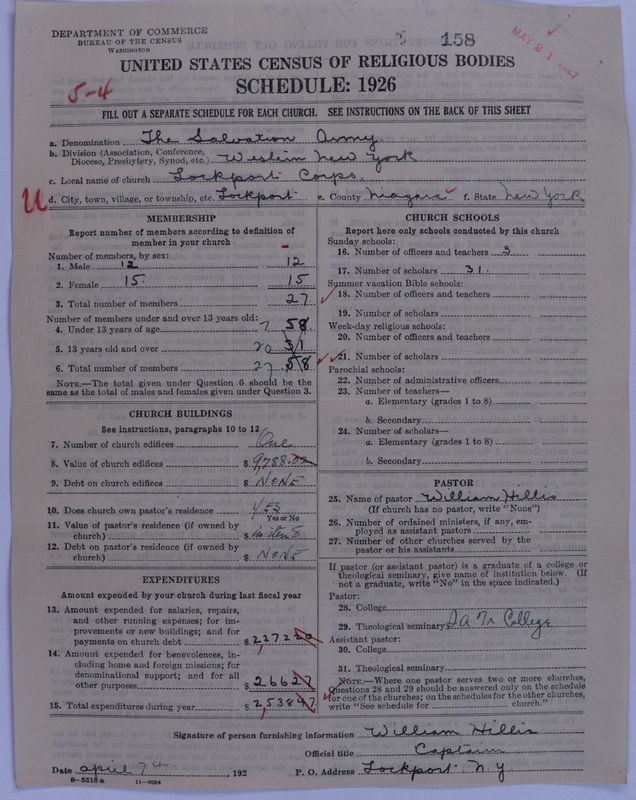 DEPARTMENT OF COMMERCE
BUREAU OF THE CENSUS
WASHINGTON
158
MAY 21 1927
UNITED STATES CENSUS OF RELIGIOUS BODIES
SCHEDULE: 1926
5-4
FILL OUT A SEPARATE SCHEDULE FOR EACH CHURCH. SEE INSTRUCTIONS ON THE BACK OF THIS SHEET
a. Denomination The Salvation Army
b. Division (Association, Conference, Diocese, Presbytery, Synod, etc.) Western New York
c. Local name of church Lockport Corps.
U d. City, town, village, or township, etc. Lockport e. County Niagara f. State New York
MEMBERSHIP
Report number of members according to definition of
member in your church
Number of members, by sex:
1. Male 12 12
2. Female 15. 15
3. Total number of members 27
Number of members under and over 13 years old:
4. Under 13 years of age 7 58
5. 13 years old and over 20 31
6. Total number of members 27 58
NOTE.—The total given under Question 6 should be the
same as the total of males and females given under Question 3.
CHURCH BUILDINGS
See instructions, paragraphs 10 to 12
7. Number of church edifices One
8. Value of church edifices $ 9,788.02
9. Debt on church edifices $ NONE
10. Does church own pastor's residence YES
Yes or No
11. Value of pastor's residence (if owned by
church) $ in item 8
12. Debt on pastor's residence (if owned by
church) $ NONE
EXPENDITURES
Amount expended by your church during last fiscal year
13. Amount expended for salaries, repairs,
and other running expenses; for im-
provements or new buildings; and for
payments on church debt $ 2,272 20
14. Amount expended for benevolences, in-
cluding home and foreign missions; for
denominational support; and for all
other purposes $ 266 27
15. Total expenditures during year $ 2,538 47
CHURCH SCHOOLS
Report here only schools conducted by this church
Sunday schools:
16. Number of officers and teachers 3
17. Number of scholars 31.
Summer vacation Bible schools:
18. Number of officers and teachers
19. Number of scholars
Week-day religious schools:
20. Number of officers and teachers
21. Number of scholars
Parochial schools:
22. Number of administrative officers
23. Number of teachers—
a. Elementary (grades 1 to 8)
b. Secondary
24. Number of scholars—
a. Elementary (grades 1 to 8)
b. Secondary
PASTOR
25. Name of pastor William Hillis
(If church has no pastor, write "None")
26. Number of ordained ministers, if any, em-
ployed as assistant pastors
27. Number of other churches served by the
pastor or his assistants
If pastor (or assistant pastor) is a graduate of a college or
theological seminary, give name of institution below. (If
not a graduate, write "No" in the space indicated.)
Pastor:
28. College
29. Theological seminary S. A. Tr College
Assistant pastor:
30. College
31. Theological seminary
NOTE.—Where one pastor serves two or more churches,
Questions 28 and 29 should be answered only on the schedule
for one of the churches; on the schedules for the other churches,
write "See schedule for church."
Signature of person furnishing information William Hillis
Official title Captain
Date April 7th, 192 P. O. Address Lockport N.Y.
8-5518a 11-9054